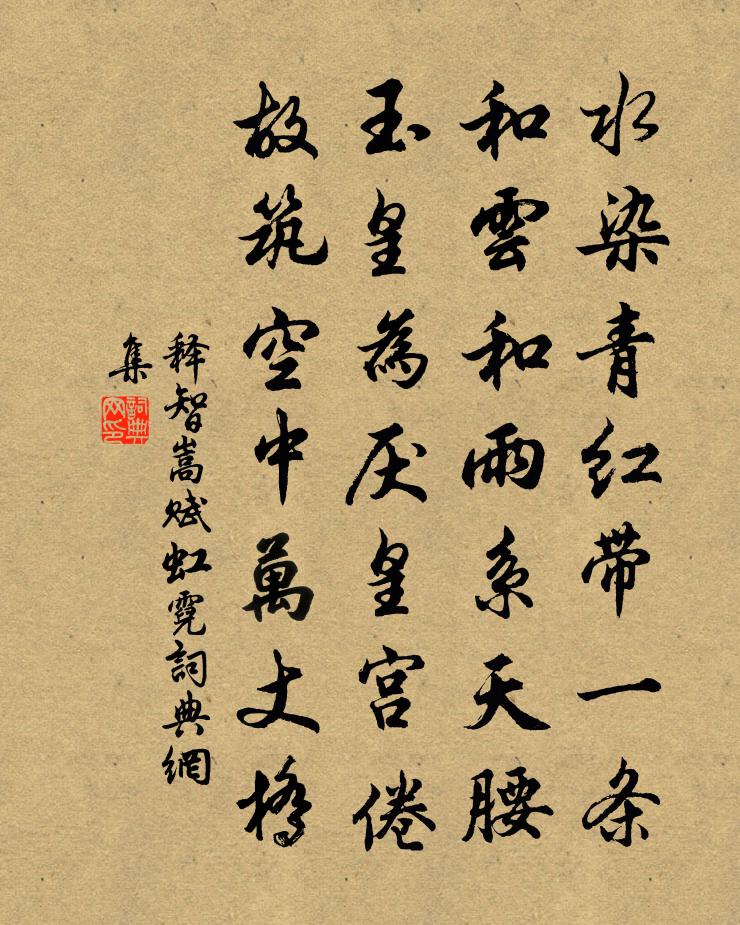 水染青红带一条
和雲和雨系天腰
玉皇為厌皇宫倦
故筑空中萬丈橋
释智嵩赋虹霓詞典網
集
詞典
网印